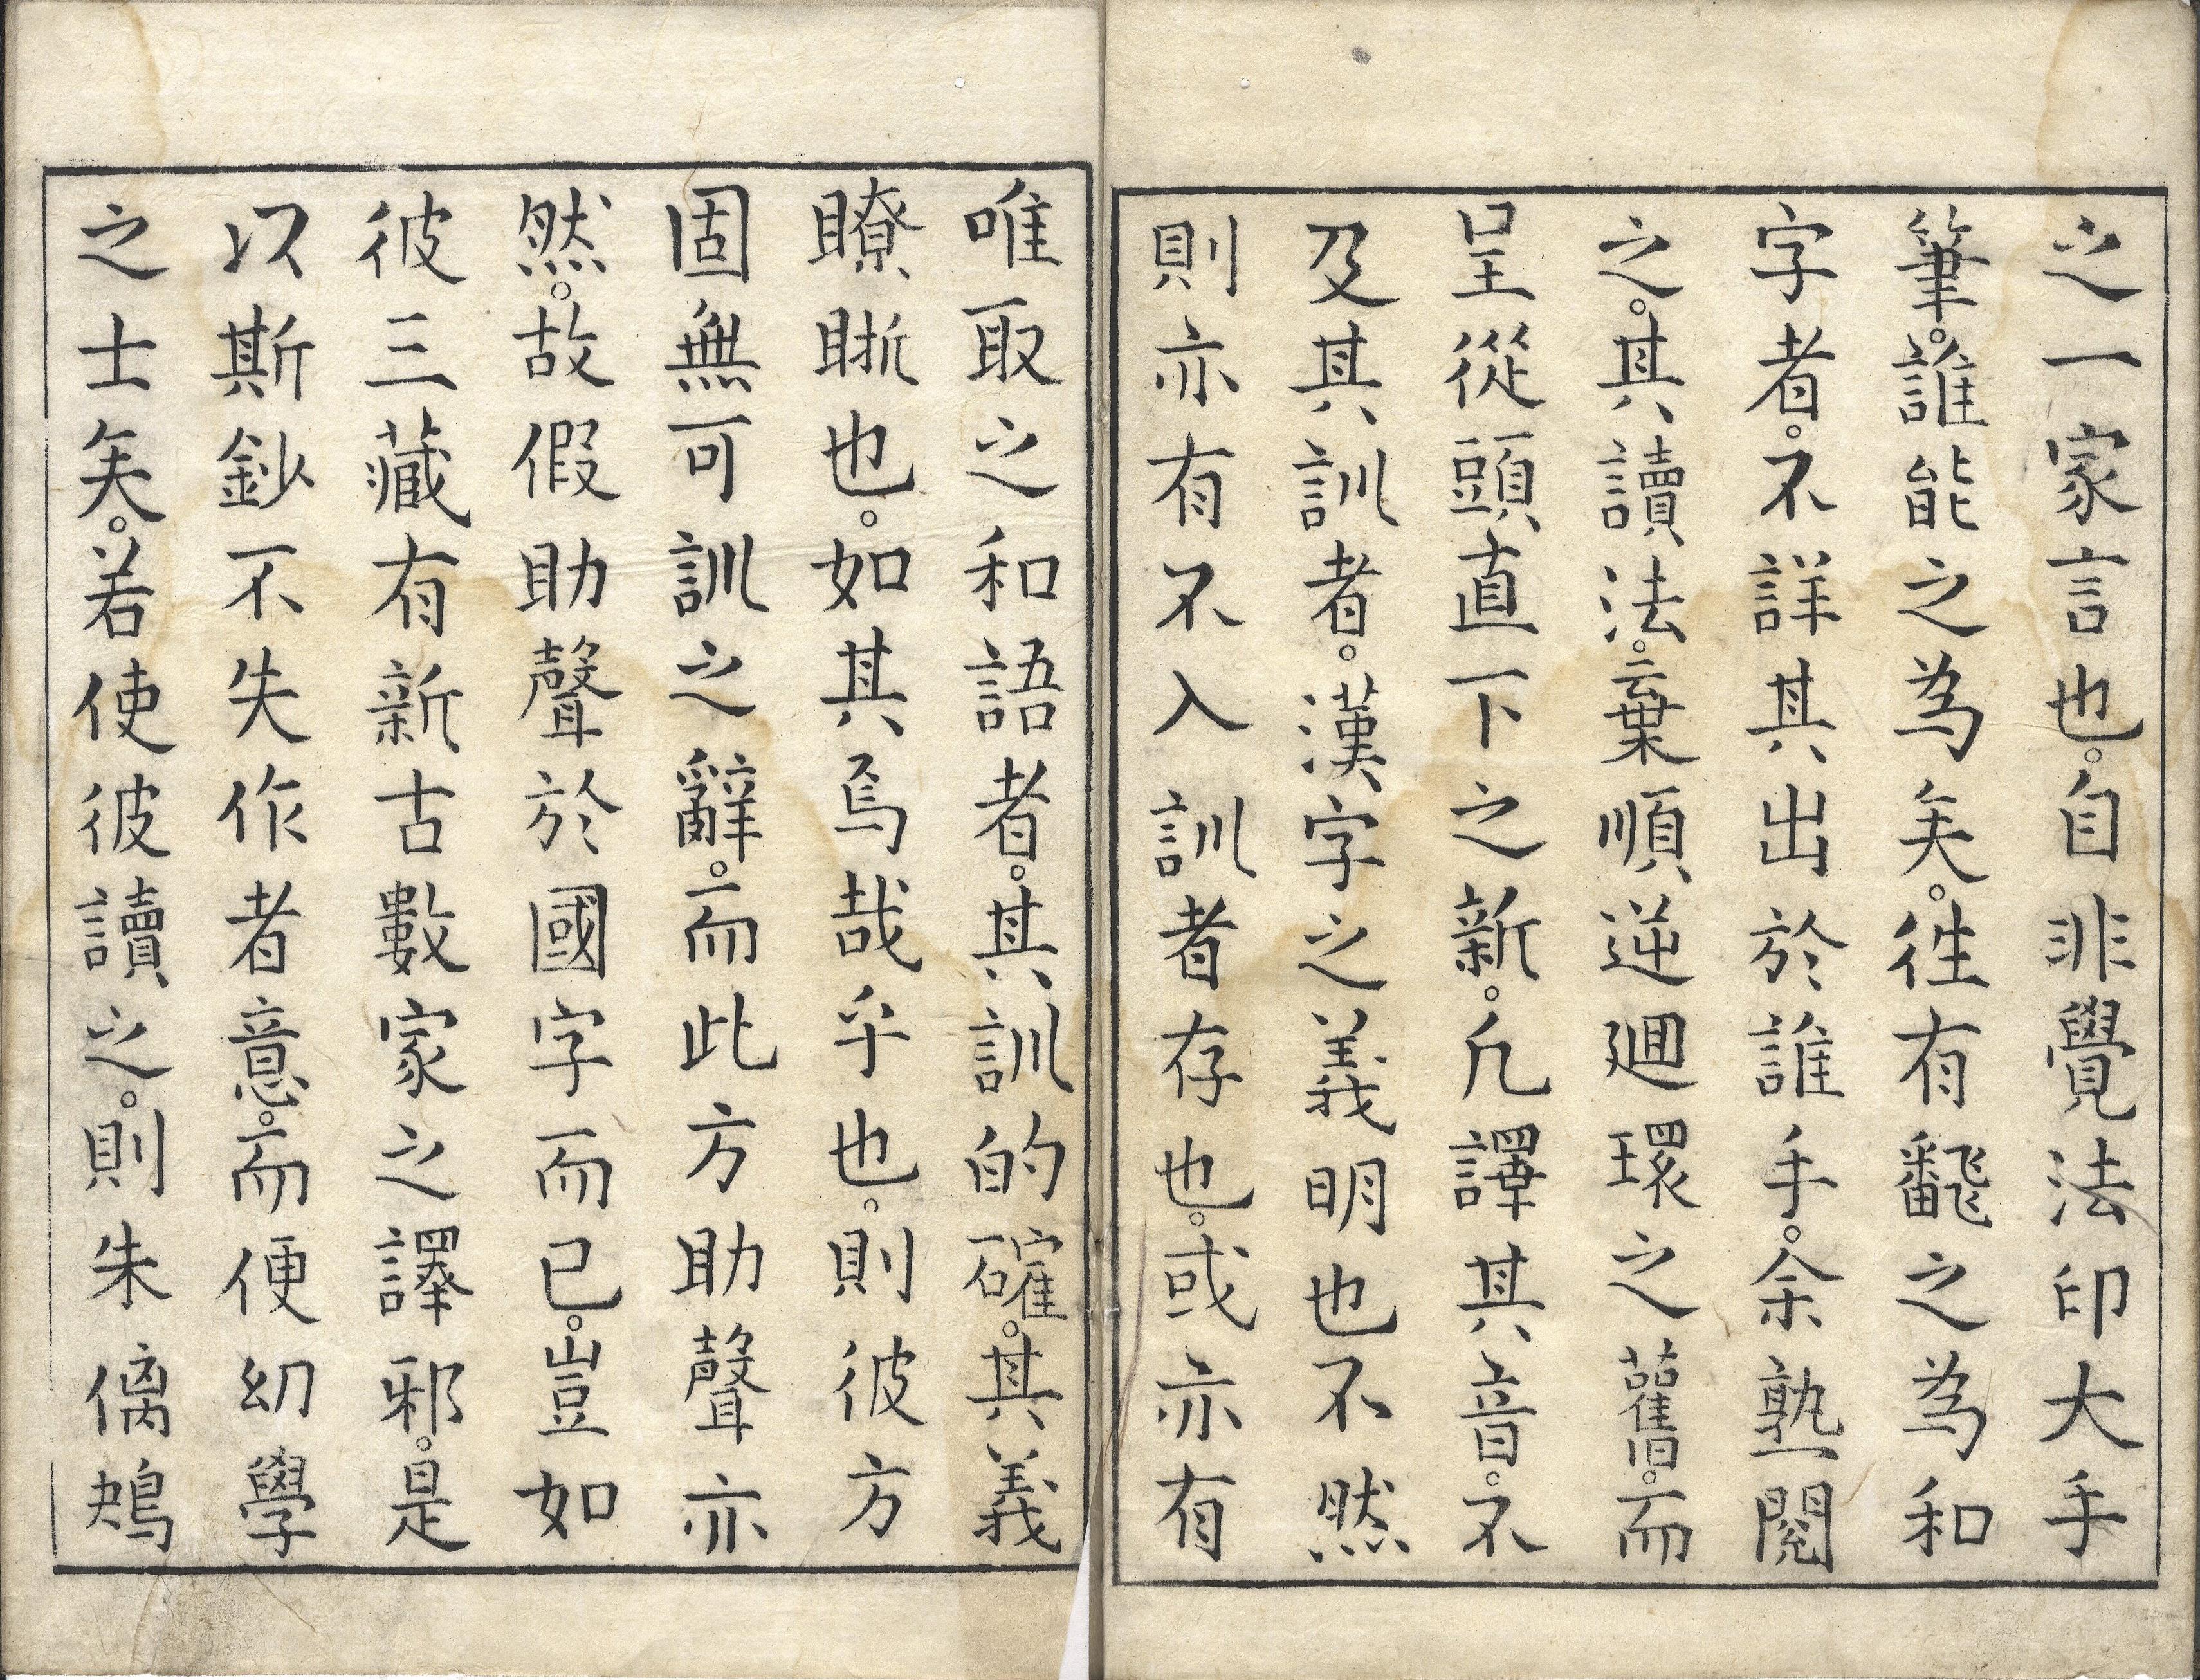 之一家言也。自非覺法印大手
筆。誰能之為矣。往有飜之為和
字者。不詳其出於誰手。余熟閱
之。其讀法。棄順逆廻環之舊。而
呈從頭直下之新。凢譯其音。不
及其訓者。漢字之義明也不然
則亦有不入訓者存也。或亦有
唯取之和語者。其訓的確。其義
瞭晣也。如其焉哉乎也。則彼方
固無可訓之辭。而此方助聲亦
然。故假助聲於國字而已。豈如
彼三藏有新古數家之譯邪。是
以斯鈔不失作者意。而便幻學
之士矣。若使彼讀之。則朱儒鴂